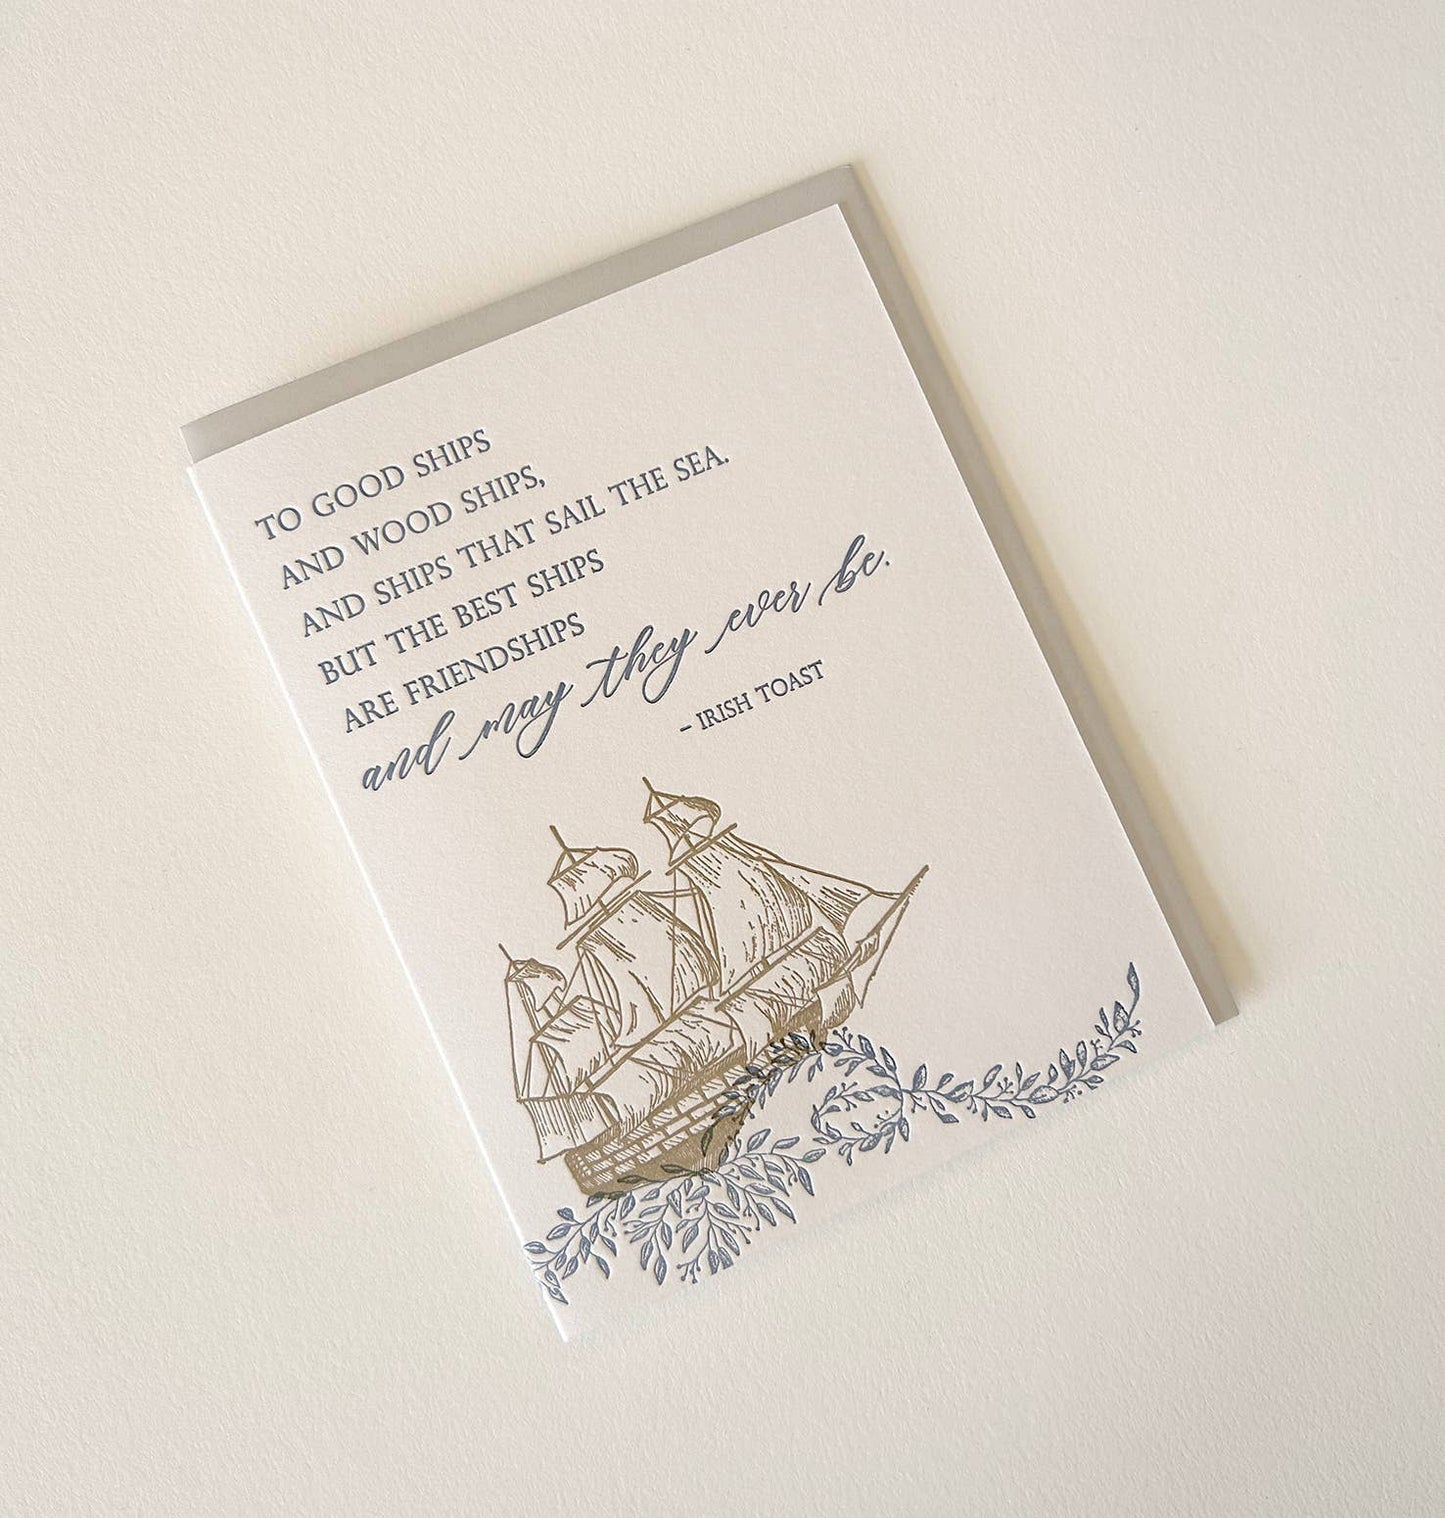 TO GOOD SHIPS
AND WOOD SHIPS,
AND SHIPS THAT SAIL THE SEA.
BUT THE BEST SHIPS
ARE FRIENDSHIPS
and may they ever be.
- IRISH TOAST